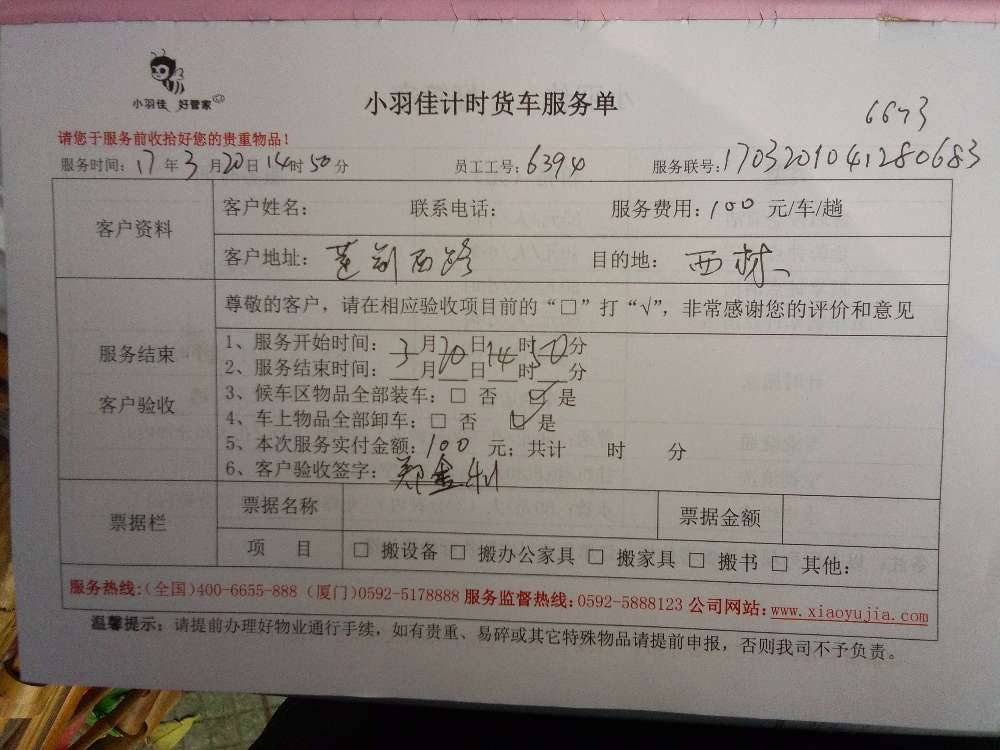 小羽佳 好管家
小羽佳计时货车服务单
6673
请您于服务前收拾好您的贵重物品!
服务时间: 17 年 3 月 20 日 14 时 50 分 员工工号: 6394 服务联号: 1703201041280683
客户资料
客户姓名: 联系电话: 服务费用: 100 元/车/趟
客户地址: 莲前西路 目的地: 西林
服务结束
客户验收
尊敬的客户，请在相应验收项目前的“□”打“√”，非常感谢您的评价和意见
1、服务开始时间: 3月20日14时50分
2、服务结束时间: __月__日__时__分
3、候车区物品全部装车: □ 否 ☑ 是
4、车上物品全部卸车: □ 否 ☑ 是
5、本次服务实付金额: 100 元; 共计 时 分
6、客户验收签字: 郑金
票据栏
票据名称 票据金额
项 目 □ 搬设备 □ 搬办公家具 □ 搬家具 □ 搬书 □ 其他:
服务热线:(全国)400-6655-888 (厦门)0592-5178888 服务监督热线:0592-5888123 公司网站:www.xiaoyujia.com
温馨提示: 请提前办理好物业通行手续，如有贵重、易碎或其它特殊物品请提前申报，否则我司不予负责。